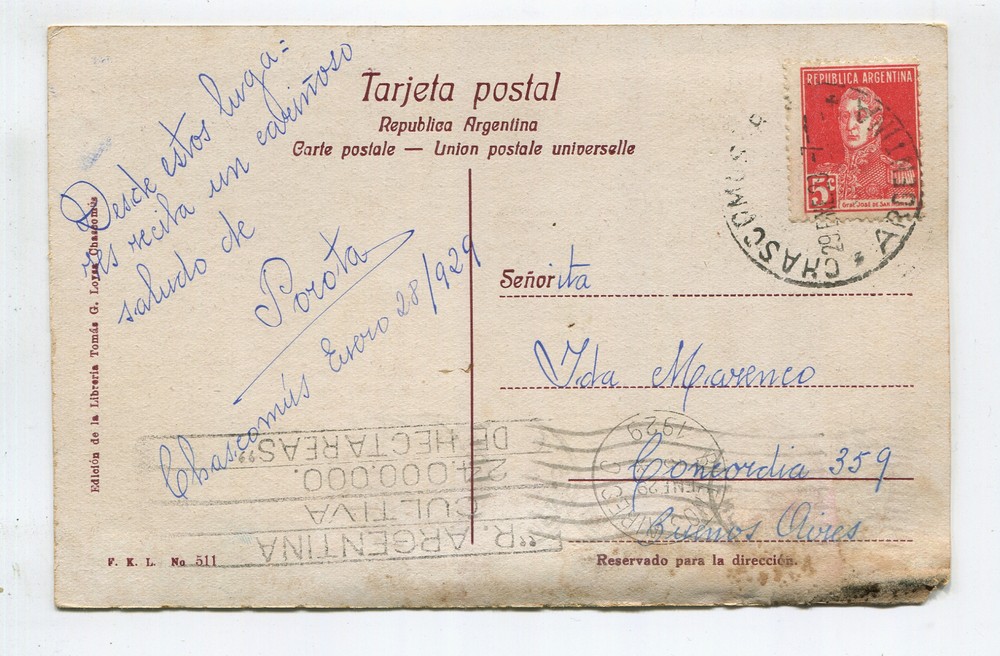 Tarjeta postal
Republica Argentina
Carte postale — Union postale universelle
Desde estos luga=
res reciba un cariñoso
saludo de
Porota
Chascomús Enero 28/929
Edición de la Libreria Tomás G. Loyza Chascomús
F. K. L. No 511
REPUBLICA ARGENTINA
5c
GRAL JOSÉ DE SAN
CHASCOMUS
ARGENTINA
29 ENE
Señorita
Ida Marenco
Concordia 359
Buenos Aires
Reservado para la dirección.
"R. ARGENTINA
CULTIVA
24.000.000.
DE HECTAREAS"
ENE 29
1929